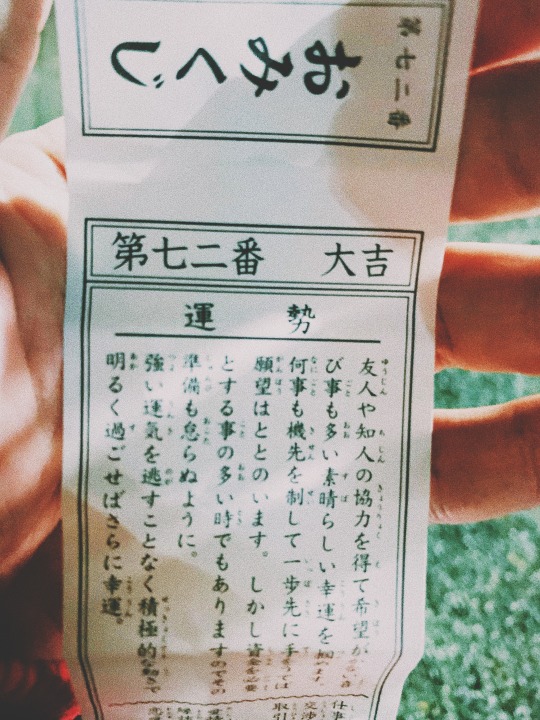 第七二番
おみくじ
第七二番 大吉
運勢
友人や知人の協力を得て希望が
び事も多い素晴らしい幸運を
何事も機先を制して一歩先に手
願望はととのいます。しかし資
とする事の多い時でもありますのでその
準備も怠らぬように。
強い運気を逃すことなく積極的
明るく過ごせばさらに幸運。
仕事
交渉
取引